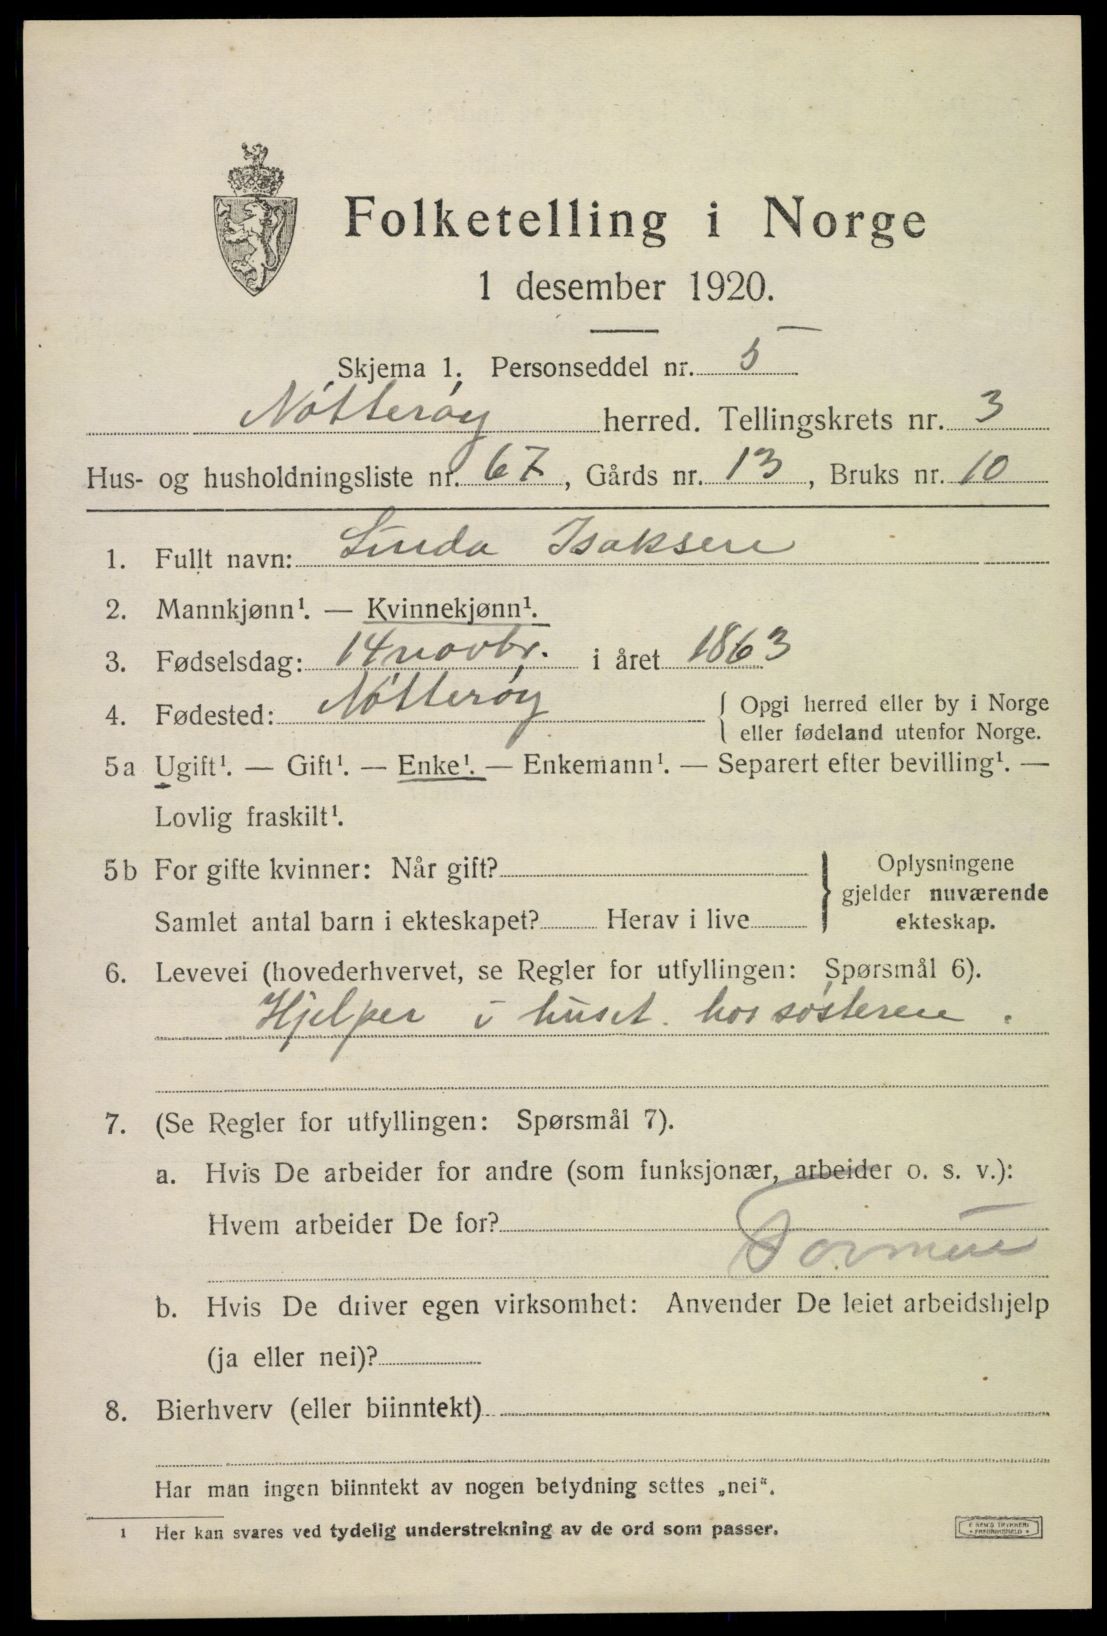 Folketelling i Norge
1 desember 1920.
Skjema 1. Personseddel nr. 5
Nótterøy herred. Tellingskrets nr. 3
Hus- og husholdningsliste nr. 67, Gårds nr. 13, Bruks nr. 10
1. Fullt navn: Linda Isaksen
2. Mannkjønn¹. — Kvinnekjønn¹.
3. Fødselsdag: 14 novbr. i året 1863
4. Fødested: Nótterøy { Opgi herred eller by i Norge
eller fødeland utenfor Norge.
5a Ugift¹. — Gift¹. — Enke¹. — Enkemann¹. — Separert efter bevilling¹. —
Lovlig fraskilt¹.
5b For gifte kvinner: Når gift?
Samlet antal barn i ekteskapet? Herav i live
} Oplysningene
gjelder nuværende
ekteskap.
6. Levevei (hovederhvervet, se Regler for utfyllingen: Spørsmål 6).
Hjelper i huset. hos søsteren.
7. (Se Regler for utfyllingen: Spørsmål 7).
a. Hvis De arbeider for andre (som funksjonær, arbeider o. s. v.):
Hvem arbeider De for?
b. Hvis De driver egen virksomhet: Anvender De leiet arbeidshjelp
(ja eller nei)?
8. Bierhverv (eller biinntekt)
Har man ingen biinntekt av nogen betydning settes „nei“.
1 Her kan svares ved tydelig understrekning av de ord som passer.